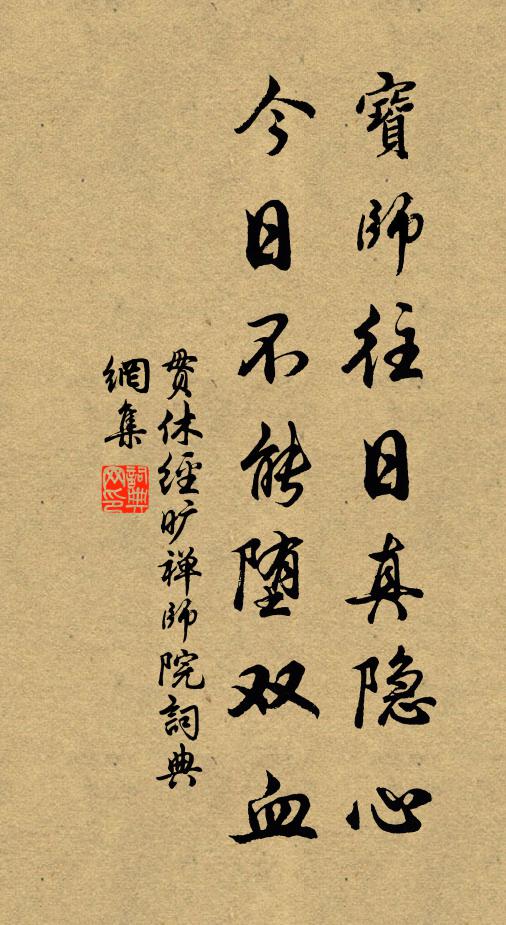 寶師往日真隐心
今日不能堕双血
贯休經旷禅師院詞典
網集
詞典
网印